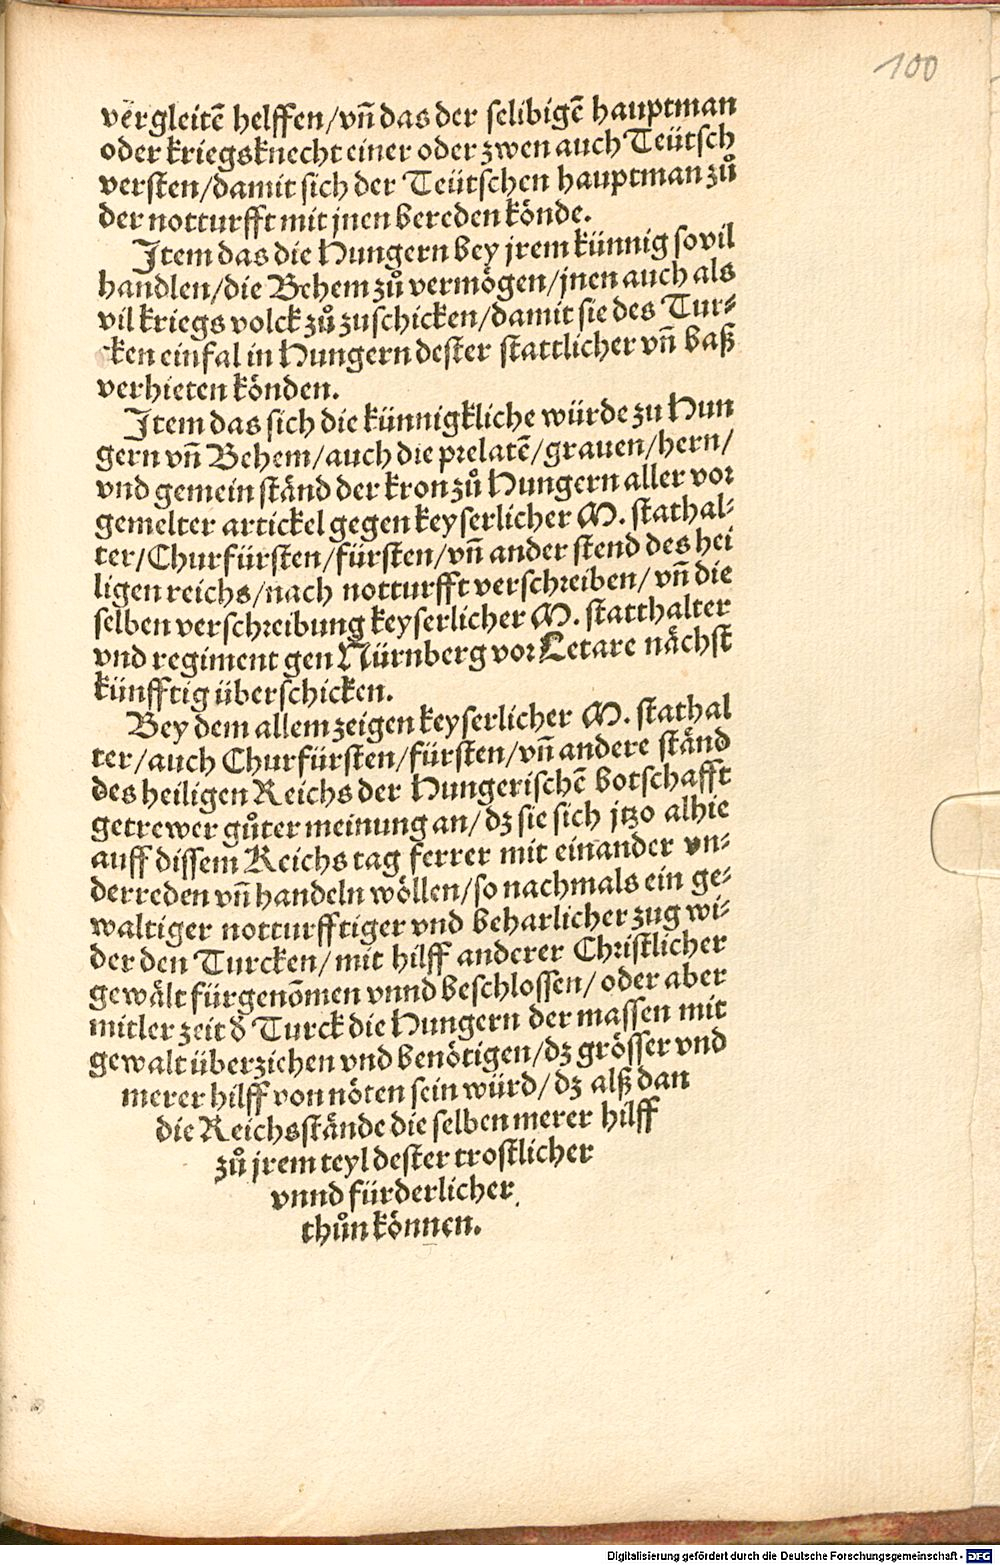 100
vergleitē helffen/vn̄ das der selibigē hauptman
oder kriegsknecht einer oder zwen auch Teütsch
versten/damit sich der Teütschen hauptman zů
der notturfft mit jnen bereden könde.
Item das die Hungern bey jrem künnig sovil
handlen/die Behem zů vermögen/jnen auch als
vil kriegs volck zů zuschicken/damit sie des Tur⸗
cken einfal in Hungern dester stattlicher vn̄ baß
verhieten könden.
Item das sich die künnigkliche würde zu Hun
gern vn̄ Behem/auch die prelatē/grauen/hern/
vnd gemein ständ der kron zů Hungern aller vor
gemelter artickel gegen keyserlicher M. stathal⸗
ter/Churfürsten/fürsten/vn̄ ander stend des hei
ligen reichs/nach notturfft verschreiben/vn̄ die
selben verschreibung keyserlicher M. statthalter
vnd regiment gen Nürnberg vor Letare nächst
künfftig überschicken.
Bey dem allem zeigen keyserlicher M. stathal
ter/auch Churfürsten/fürsten/vn̄ andere ständ
des heiligen Reichs der Hungerischē botschafft
getrewer gůter meinung an/dz sie sich jtzo alhie
auff dissem Reichs tag ferrer mit einander vn⸗
derreden vn̄ handeln wöllen/so nachmals ein ge⸗
waltiger notturfftiger vnd beharlicher zug wi⸗
der den Turcken/mit hilff anderer Christlicher
gewält fürgenōmen vnnd beschlossen/oder aber
mitler zeit d̕ Turck die Hungern der massen mit
gewalt überziehen vnd benötigen/dz grösser vnd
merer hilff von nöten sein würd/dz alß dan
die Reichsstände die selben merer hilff
zů jrem teyl dester trostlicher
vnnd fürderlicher
thůn können.
Digitalisierung gefördert durch die Deutsche Forschungsgemeinschaft - DFG